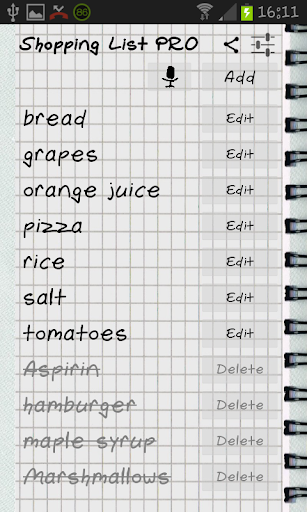 16:11
Shopping List PRO
Add
bread Edit
grapes Edit
orange juice Edit
pizza Edit
rice Edit
salt Edit
tomatoes Edit
Aspirin Delete
hamburger Delete
maple syrup Delete
Marshmallows Delete